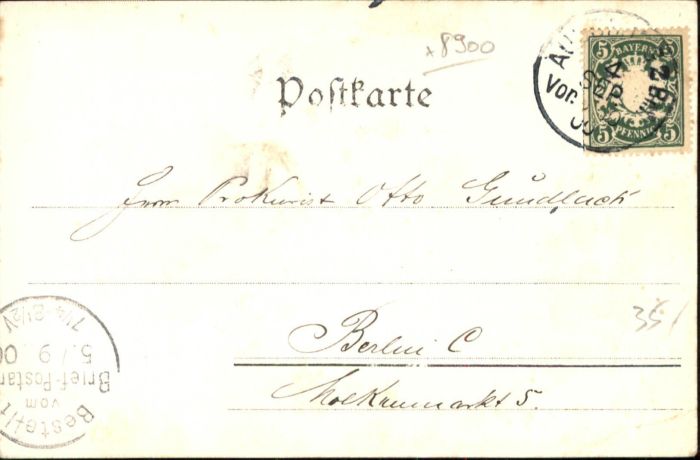 *8900
Postkarte
5 BAYERN 5
5 PFENNIG 5
Vor.
SEP
Herrn Prokurist Otto Gundlach
Berlin C
Molkenmarkt 5.
35
Bestellt
vom
Brief-Postamt
5./9. 00
7¼-8½V